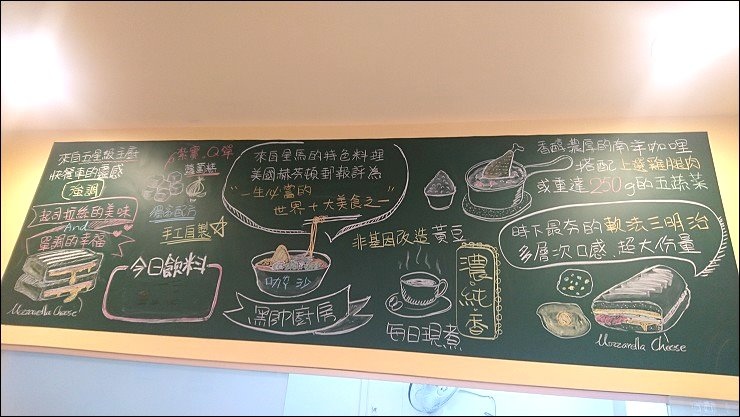 來自五星級主廚
快餐車的靈感
強調
起司拉絲的美味
And
單純的幸福
Mozzarella Cheese
紮實.Q彈
蘿蔔糕
獨家配方
手工自製
今日飲料
來自星馬的特色料理
美國赫芬頓郵報評為
"一生必嘗的
世界十大美食之一"
咖沙
黑帥廚房
非基因改造黃豆
濃.純.香
每日現煮
香醇濃厚的南洋咖哩
搭配上選雞腿肉
或重達250g的五蔬菜
時下最夯的軟法三明治
多層次口感.超大份量
Mozzarella Cheese